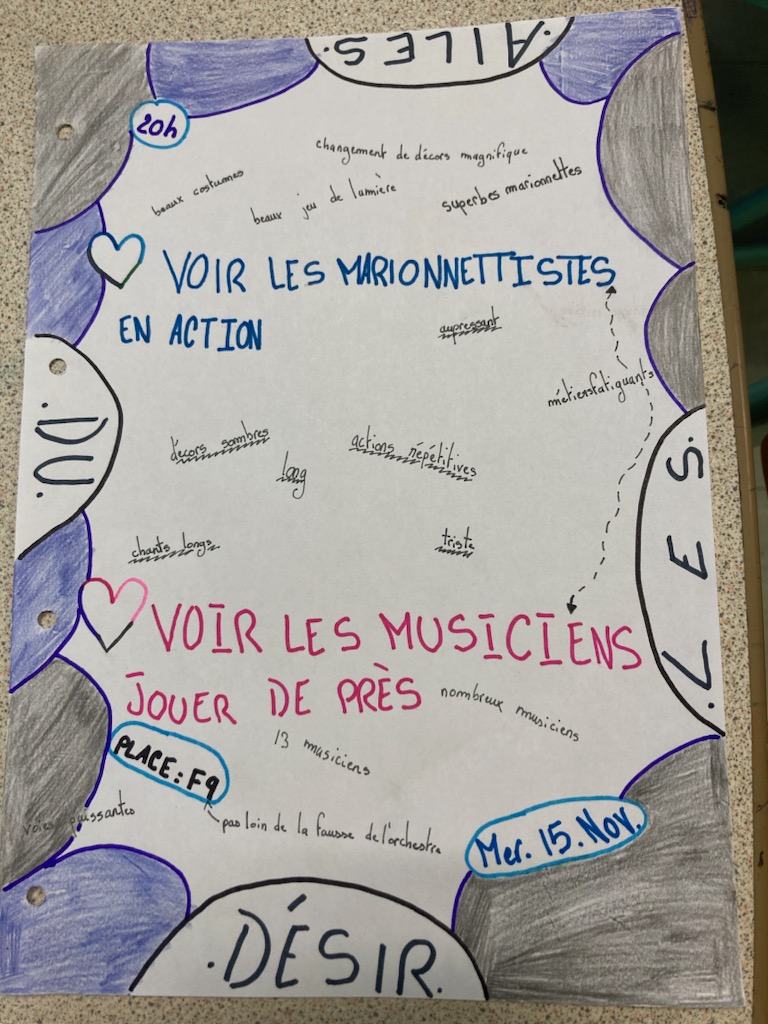 .AILES.
20h
changement de décors magnifique
beaux costumes
beaux jeu de lumière
superbes marionnettes
VOIR LES MARIONNETTISTES
EN ACTION
aupressant
métiersfatiguants
.DU.
décors sombres
long
actions répétitives
.LES.
chants longs
triste
VOIR LES MUSICIENS
JOUER DE PRÈS
nombreux musiciens
13 musiciens
PLACE: F9
voies puissantes
pas loin de la fausse de l'orchestre
Mer. 15. Nov.
.DÉSIR.